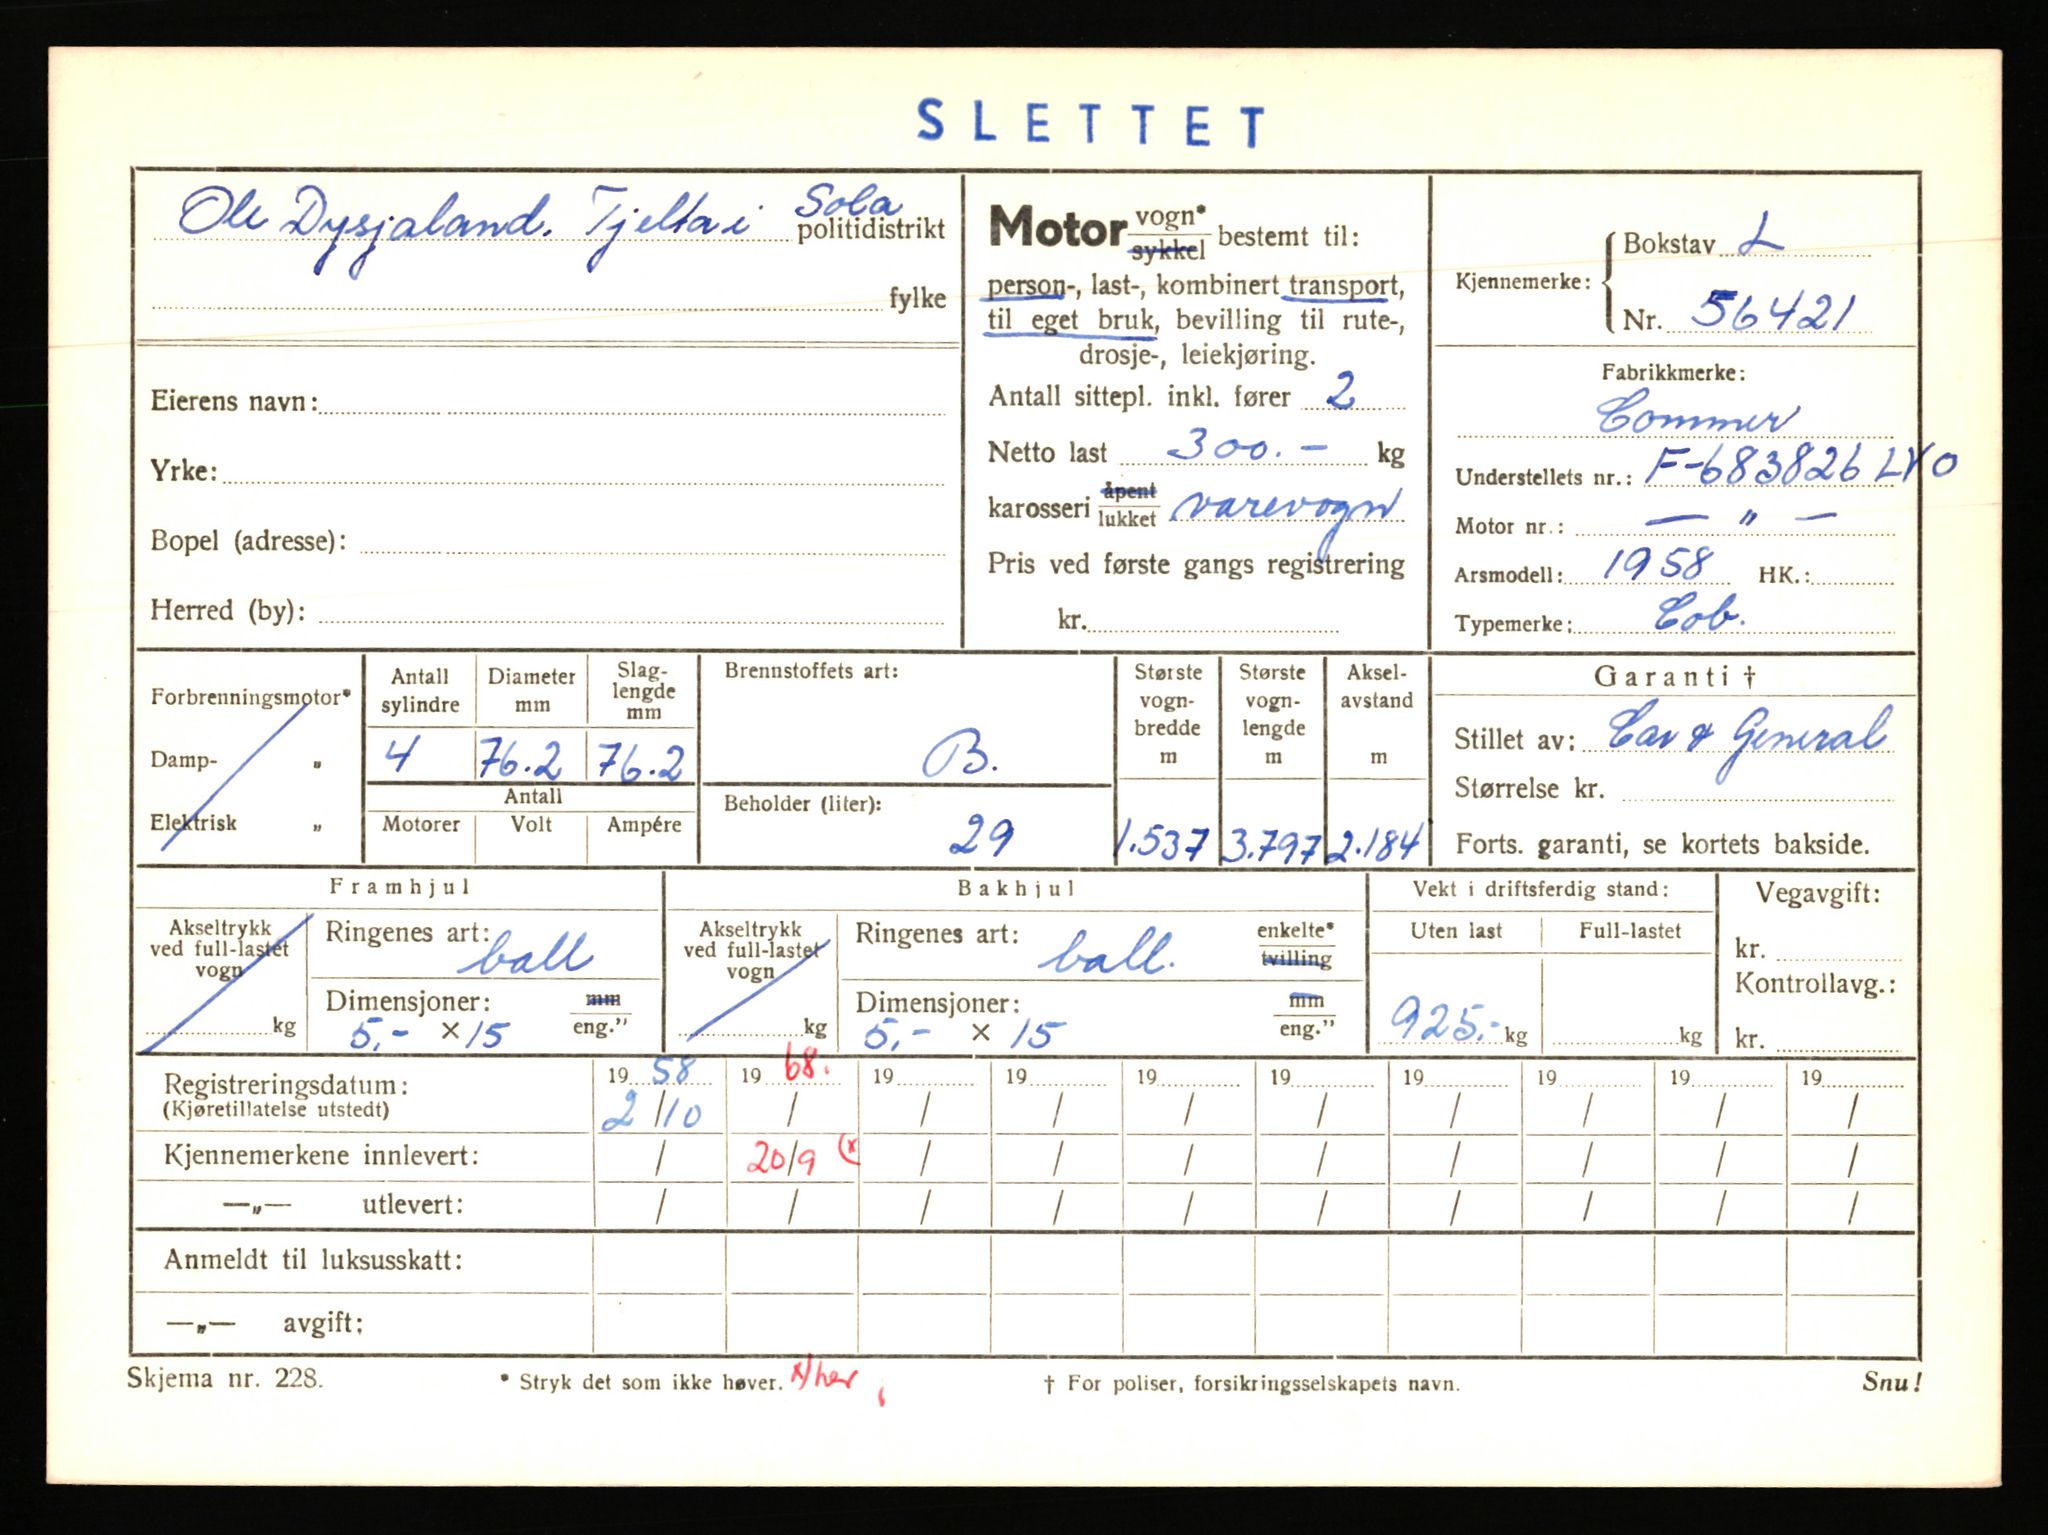 SLETTET
Ole Dysjaland. Tjelta i Sola politidistrikt
fylke
Eierens navn:
Yrke:
Bopel (adresse):
Herred (by):
Motor vogn* sykkel bestemt til:
person-, last-, kombinert transport,
til eget bruk, bevilling til rute-,
drosje-, leiekjøring.
Antall sittepl. inkl. fører 2
Netto last 300.- kg
karosseri åpent lukket varevogn
Pris ved første gangs registrering
kr.
Kjennemerke: Bokstav L
Nr. 56421
Fabrikkmerke:
Commer
Understellets nr.: F-683826 LYO
Motor nr.: — " —
Arsmodell: 1958 HK.:
Typemerke: Cob.
Forbrenningsmotor*
Damp- „
Elektrisk „
Antall sylindre Diameter mm Slag-lengde mm
4 76.2 76.2
Antall
Motorer Volt Ampére
Brennstoffets art:
B.
Beholder (liter):
29
Største vogn-bredde m Største vogn-lengde m Aksel-avstand m
1.537 3.797 2.184
Garanti †
Stillet av: Car & General
Størrelse kr.
Forts. garanti, se kortets bakside.
Framhjul
Akseltrykk ved full-lastet vogn
kg
Ringenes art: ball
Dimensjoner: mm eng."
5,- × 15
Bakhjul
Akseltrykk ved full-lastet vogn
kg
Ringenes art: ball. enkelte* tvilling
Dimensjoner: mm eng."
5,- × 15
Vekt i driftsferdig stand:
Uten last Full-lastet
925.- kg kg
Vegavgift:
kr.
Kontrollavg.:
kr.
Registreringsdatum: 19 58 19 68. 19 19 19 19 19 19 19 19
(Kjøretillatelse utstedt) 2/10 / / / / / / / / /
Kjennemerkene innlevert: / 20/9 (x / / / / / / / /
—„— utlevert: / / / / / / / / / /
Anmeldt til luksusskatt:
—„— avgift:
Skjema nr. 228. * Stryk det som ikke høver. x/her † For poliser, forsikringsselskapets navn. Snu!